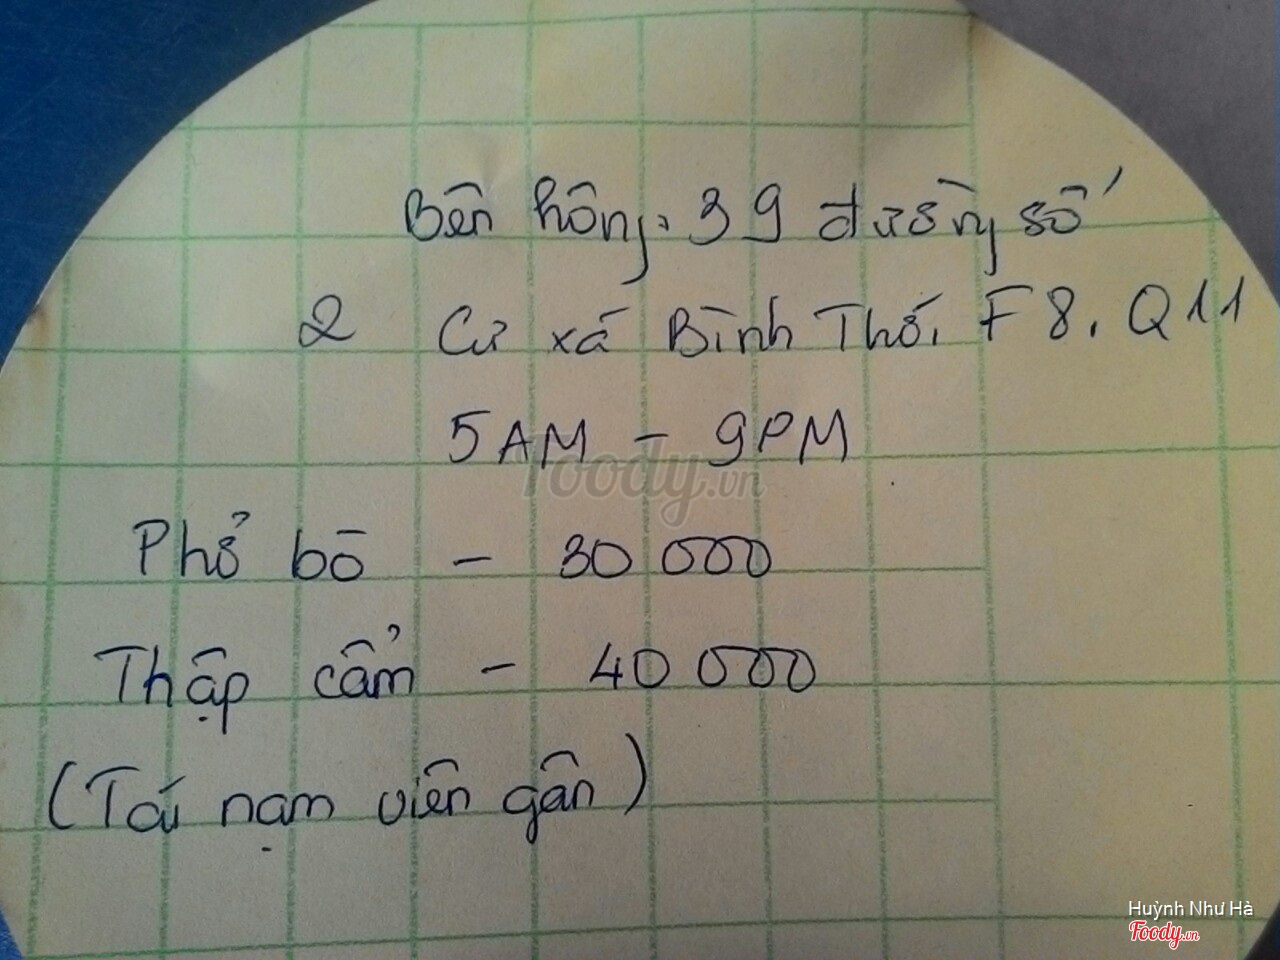 Bên hông. 39 đường số
2 Cư xá Bình Thới, F8. Q11
5AM - 9PM
Foody.vn
Phở bò - 30 000
Thập cẩm - 40 000
(Tái nạm viên gân)
Huỳnh Như Hà
Foody.vn